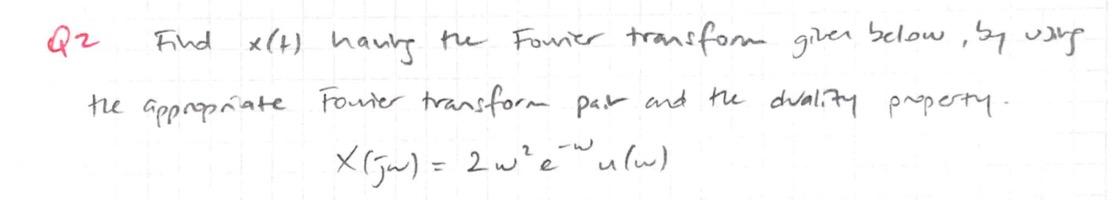 Q2 Find x(t) having the Fourier transform given below, by using
the appropriate Fourier transform pair and the duality property.
X(jω) = 2ω²e⁻ω u(ω)